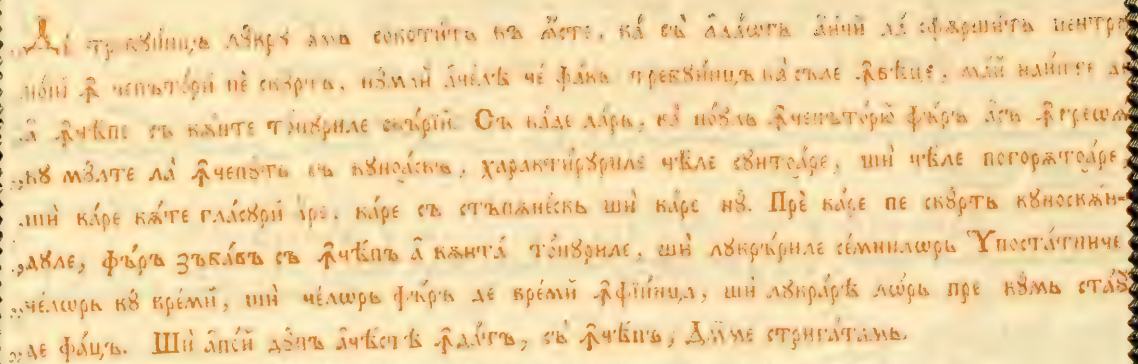 „Де требꙋи́нцъ лꙋ́крꙋ амь сокоти́ть къ ꙗ҆́сте, ка́ съ а҆да́ѡгъ а҆и́чй ла́ сфѫрши́ть пентрꙋ
„но́йй ꙟ҆чепъто́рй пе скꙋрть, нꙋ́май а҆че́лѣ че́ фа́кь требꙋи́нцъ ка́ съле ꙟ҆ве́це, май наи́нте де
„а҆ ꙟ҆че́пе съ кѫ́нте то́нꙋриле скъ́рїй. Съ ка́де да́рь, ка́ но́ꙋль ꙟ҆чепъто́рю фъ́ръ а҆съ ꙟ҆гревѧ́
„кꙋ мꙋ́лте ла́ ꙟ҆чепꙋ́ть съ кꙋноа́скъ, характи́рꙋриле че́ле сꙋитоа́ре, шѝ че́ле погорѫтоа́ре,
„шѝ ка́ре кѫ́те гла́сꙋрй а҆́ре, ка́ре съ стъпѫне́скь шѝ ка́ре нꙋ̀. Прѐ ка́ре пе скꙋ́рть кꙋноскѫ́н-
„дꙋле, фъ́ръ зъба́въ съ ꙟ҆че́пъ а҆ кѫнта̀ то́нꙋриле, шѝ лꙋкръ́риле се́мнилѡрь Ѵ҆поста́тниче
„че́лѡрь кꙋ вре́мй, шѝ че́лѡрь фъ́ръ де вре́мй ꙟ҆фїи́нца, шѝ лꙋкра́рѣ лѡрь пре кꙋмь ста́ꙋ
„де фа́цъ. Шѝ а҆по́й дꙋ́пъ а҆че́стѣ ꙟ҆да́тъ, съ ꙟ҆че́пъ, До́мне стрига́тамь.